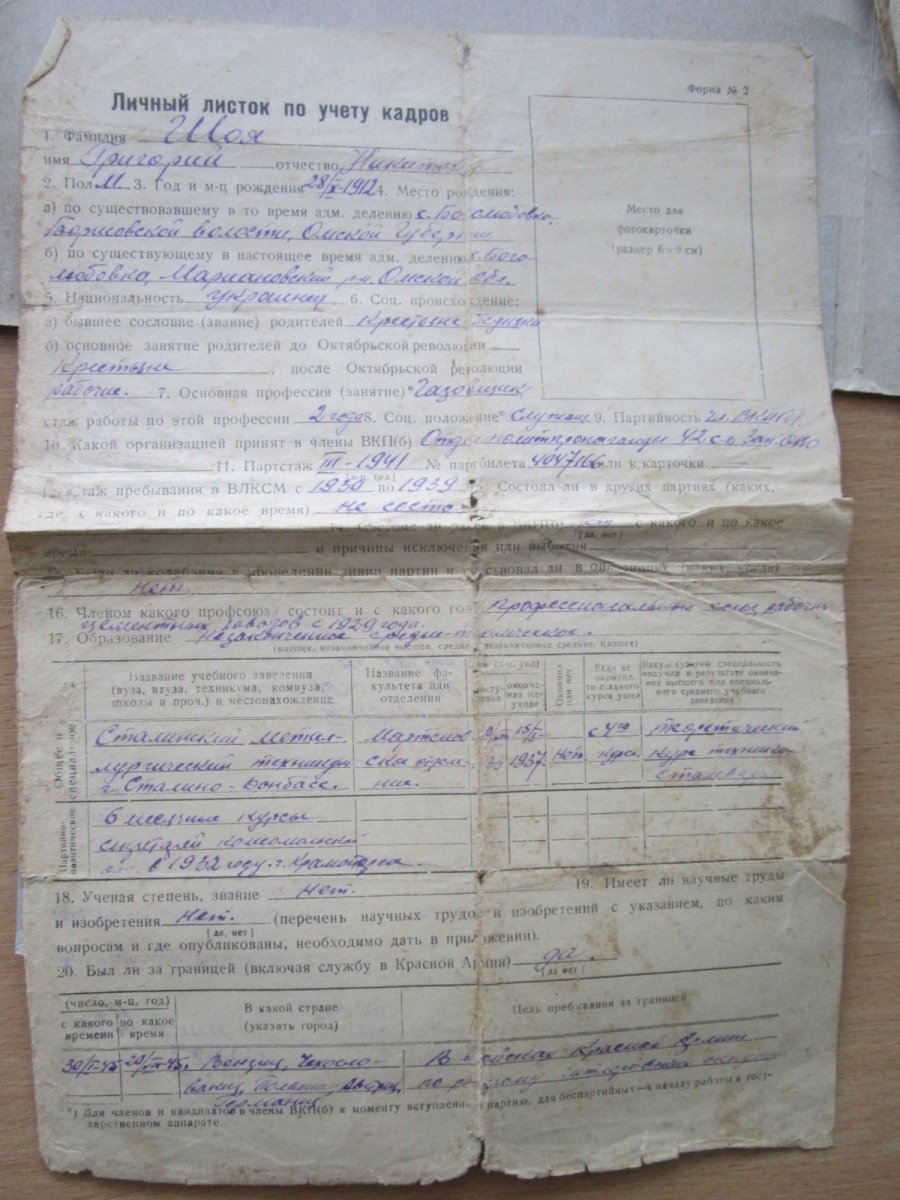 Форма № 2
Личный листок по учету кадров
1. Фамилия Швоя
имя Григорий отчество
2. Пол М. 3. Год и м-ц рождения 28/X-1912 4. Место рождения:
а) по существовавшему в то время адм. делению с. Боголюбовка,
Борисовской волости, Омской Губернии
б) по существующему в настоящее время адм. делению с. Бого-
любовка, Марьяновский р-н, Омской обл.
5. Национальность украинец 6. Соц. происхождение:
а) бывшее сословие (звание) родителей Крестьяне
б) основное занятие родителей до Октябрьской революции
Крестьяне, после Октябрьской революции
рабочие. 7. Основная профессия (занятие)* Газовщик
стаж работы по этой профессии 2 года 8. Соц. положение* служащ. 9. Партийность чл. ВКП(б).
10. Какой организацией принят в члены ВКП(б) Отдел политпропаганды 42 с.д. Зап. ОВО
11. Партстаж III-1941 № партбилета 4047166 или к карточки —
(м-ц, год)
12. Стаж пребывания в ВЛКСМ с 1930 по 1939 13. Состоял ли в других партиях (каких,
где, с какого и по какое время) не состо-
14. Состоял ли ранее в ВКП(б) с какого и по какое
[да, нет]
время и причины исключения или выбытия
15. Были ли колебания в проведении линии партии и участвовал ли в оппозициях (каких, когда)
Нет
16. Членом какого профсоюза состоит и с какого года профессиональный союз рабочих
цементных заводов с 1929 года.
17. Образование Незаконченное средне-техническое.
(высшее, незаконченное высшее, среднее, незаконченное среднее, низшее)
Название учебного заведения (вуза, втуза, техникума, комвуза, школы и проч.) и местонахождение
Название факультета или отделения
(м-ц, год)
поступления
окончания или ухода
Окончил или нет
Если не окончил, то с какого курса ушел
Какую (узкую) специальность получил в результате окончания высшего или специального среднего учебного заведения
Общее и специальное
Сталинский метал-
лургический техникум
г. Сталино-Донбасс.
Мартенов-
ское отделе-
ние.
15/
1937
Нет
с 4го
курса
теоретический
курс техника
сталевара
Партийно-политическое
6 месячные курсы
секретарей комсомольской
в 1932 году г. Краматорск.
18. Ученая степень, звание Нет. 19. Имеет ли научные труды
и изобретения Нет. (перечень научных трудов и изобретений с указанием, по каким
[да, нет]
вопросам и где опубликованы, необходимо дать в приложении).
20. Был ли за границей (включая службу в Красной Армии) да.
[да нет]
(число, м-ц, год)
с какого времени
по какое время
В какой стране
(указать город)
Цель пребывания за границей
Венгрия, Чехосло-
вакия, Польша,
Германия
В войсках Красной Армии
по разгрому гитлеровских
*) Для членов и кандидатов в члены ВКП(б) к моменту вступления в партию, для беспартийных—к началу работы в госу-
дарственном аппарате.
Место для
фотокарточки
(размер 6×9 см)